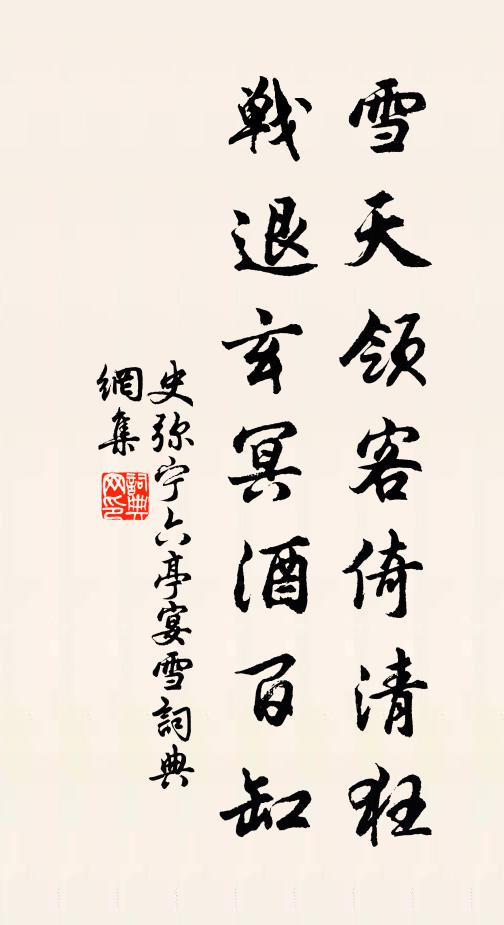 雪天领客倚清狂
戦退玄冥酒百缸
史弥宁六亭宴雪詞典
網集
詞典
网印